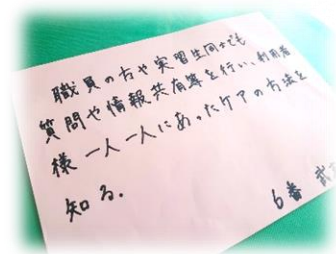 職員の方や実習生同士でも
質問や情報共有等を行い、利用者
様一人一人にあったケアの方法を
知る.
6番